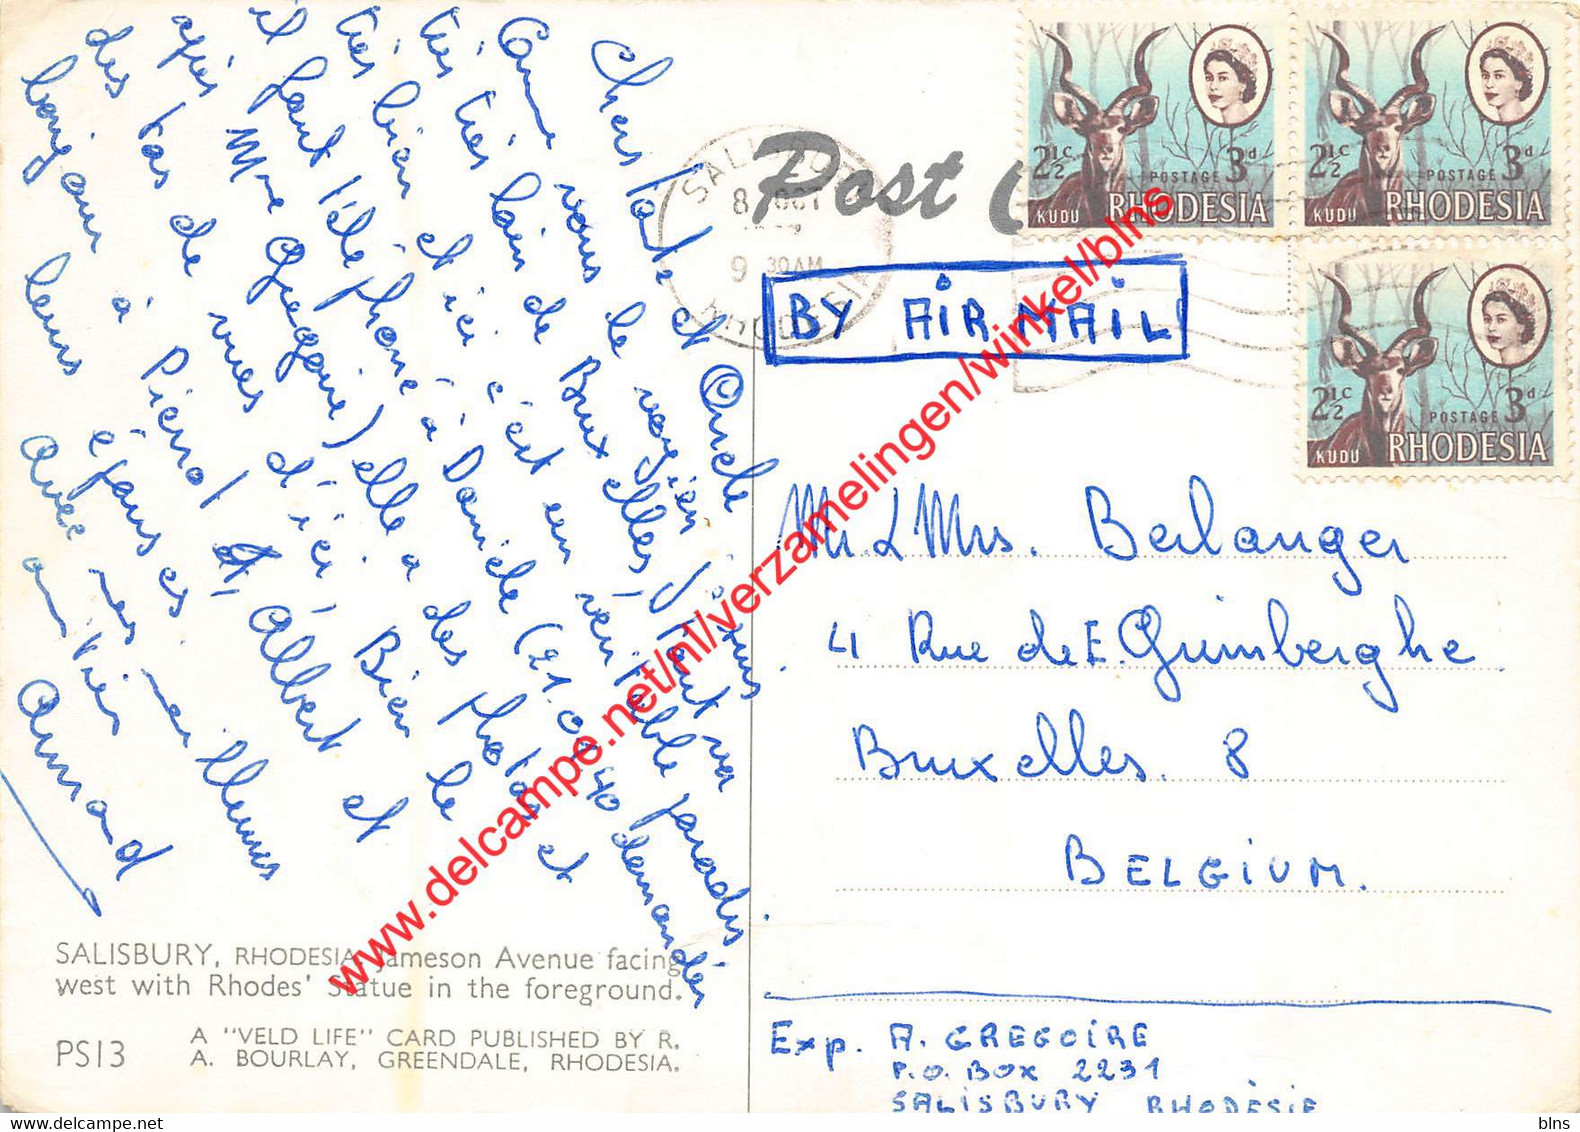 Chers Tante et Oncle
Comme vous le voyez je suis
très très loin de Bruxelles, tout va
très bien et ici c'est un véritable paradis.
il faut téléphoner à Danièle (21.02.40 demandes
après Mme Gregoire) elle a des photos et
des tas de vues d'ici. Bien le
bonjour à Pierrot, Albert et
leurs épouses.
Avec mes meilleures
amitiés
Armand
SALISBURY, RHODESIA. Jameson Avenue facing
west with Rhodes' Statue in the foreground.
PS13
A "VELD LIFE" CARD PUBLISHED BY R.
A. BOURLAY, GREENDALE, RHODESIA.
Post
SALISBURY
8 OCT
9 30AM
RHODESIA
BY AIR MAIL
2½c POSTAGE 3d
KUDU RHODESIA
2½c POSTAGE 3d
KUDU RHODESIA
2½c POSTAGE 3d
KUDU RHODESIA
Mr. & Mrs. Berlanger
41 Rue de E. Grimberghe
Bruxelles. 8
BELGIUM.
Exp. A. GREGOIRE
P.O. BOX 2231
SALISBURY RHODÈSIE
www.delcampe.net/nl/verzamelingen/winkel/blns
blns